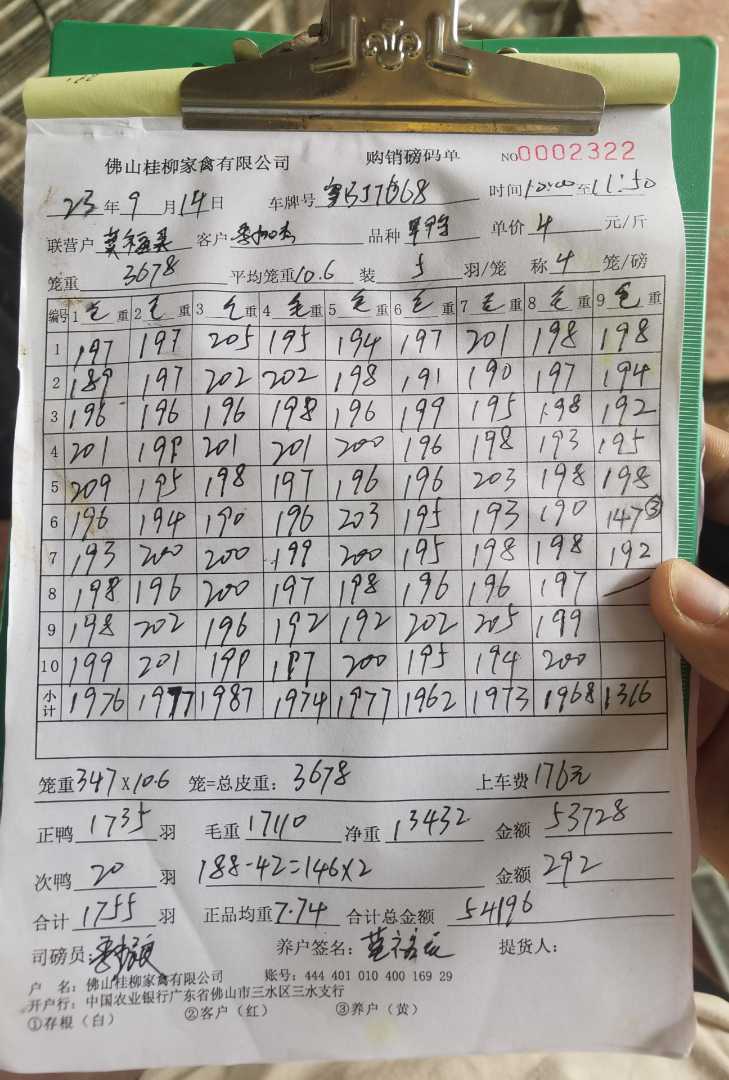 佛山桂柳家禽有限公司 购销磅码单 NO0002322
23年9月14日 车牌号 时间10:00至11:50
联营户 客户 品种 单价4元/斤
笼重3678 平均笼重10.6 装5羽/笼 称4笼/磅
编号 1毛重 2毛重 3毛重 4毛重 5毛重 6毛重 7毛重 8毛重 9毛重
1 197 197 205 195 194 197 201 198 198
2 189 197 202 202 198 191 190 197 194
3 196 196 196 198 196 199 195 198 192
4 201 199 201 201 200 196 198 193 195
5 209 195 198 197 196 196 203 198 198
6 196 194 190 196 203 195 193 190 147③
7 193 200 200 199 200 195 198 198 192
8 198 196 200 197 198 196 196 197
9 198 202 196 192 192 202 205 199
10 199 201 199 197 200 195 194 200
小计 1976 1977 1987 1974 1977 1962 1973 1968 1316
笼重347×10.6 笼=总皮重：3678 上车费176元
正鸭1735羽 毛重17110 净重13432 金额53728
次鸭20羽 188-42=146×2 金额292
合计1755羽 正品均重7.74 合计总金额54196
司磅员： 养户签名： 提货人：
户 名：佛山桂柳家禽有限公司 账号：444 401 010 400 169 29
开户行：中国农业银行广东省佛山市三水区三水支行
①存根（白） ②客户（红） ③养户（黄）